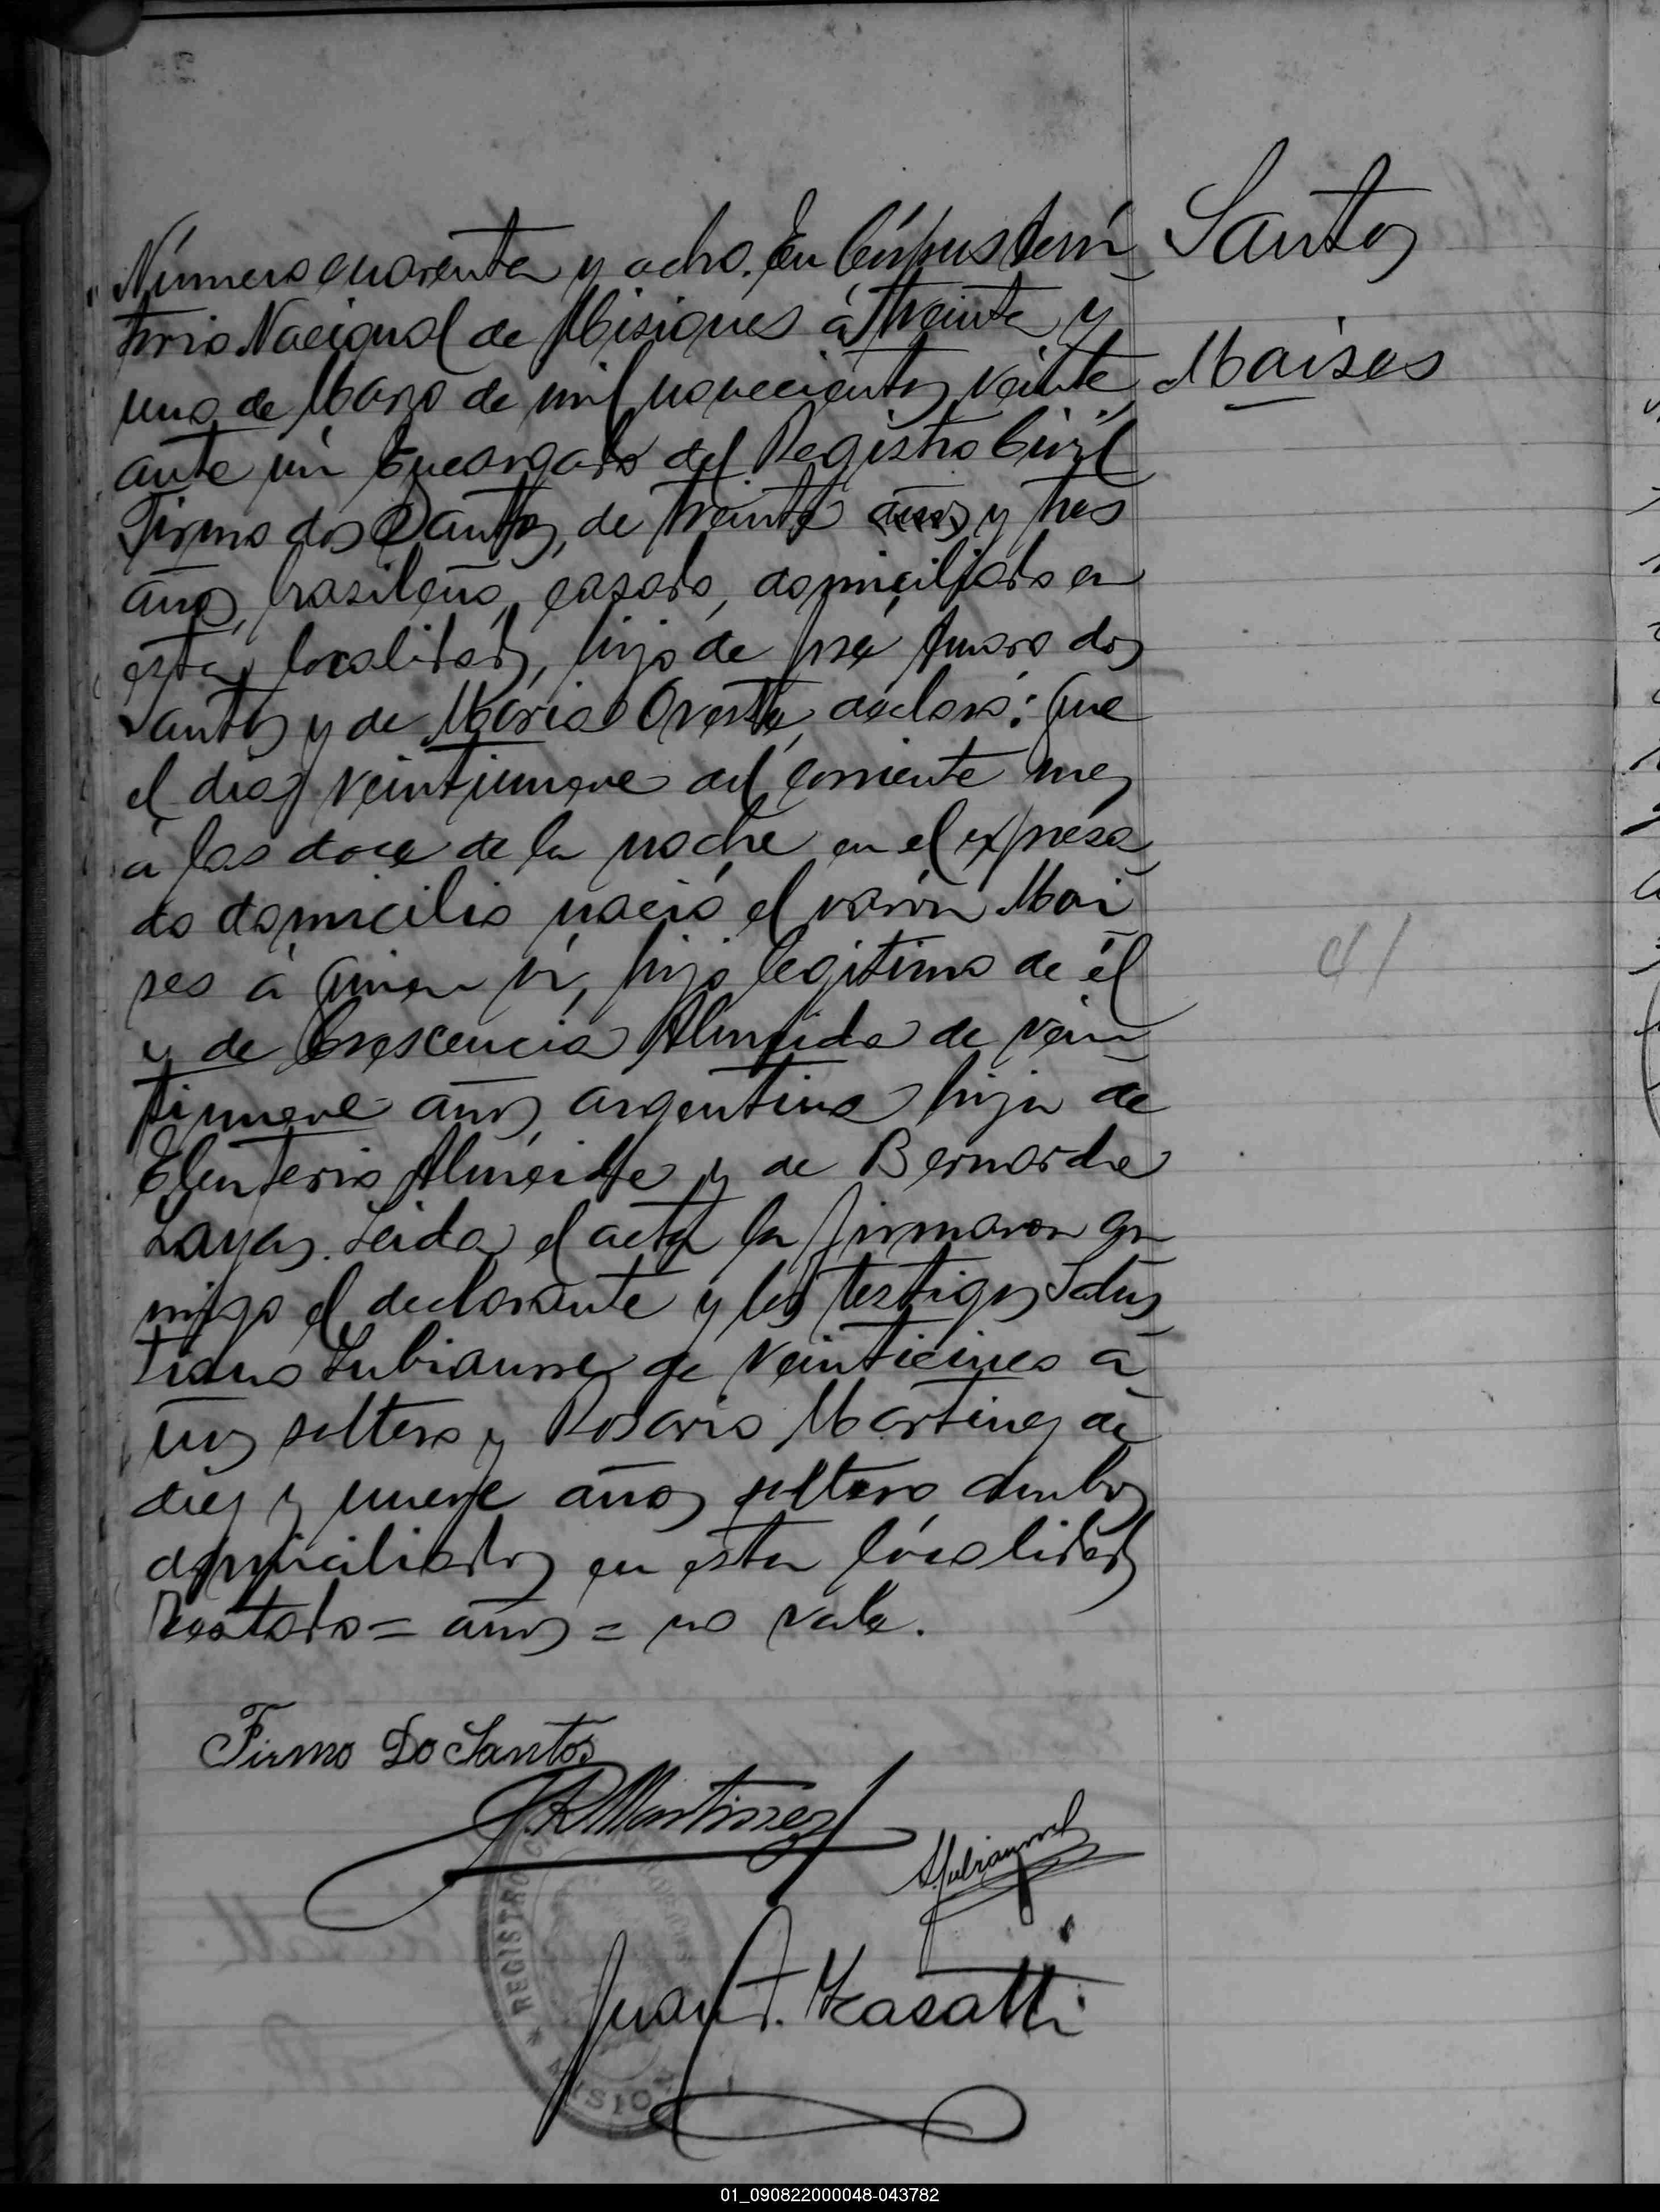 Santos
Moises
Número cuarenta y ocho. En Córpus Terri
torio Nacional de Misiones á treinta y
uno de Marzo de mil novecientos veinte
ante mi Encargado del Registro Civil
Firmo dos Santos, de treinta años y tres
años, brasileño, casado, domiciliado en
esta localidad, hijo de José Amaro dos
Santos y de María declaró: Que
el dia veintinueve del corriente mes
á las doce de la noche en el expresa
do domicilio nació el varón Moi
ses á quien ví, hijo legitimo de él
y de Crescencia Almeida de vein
tinueve años, argentina hija de
Eleuterio Almeida y de Bernarda
Layas. Leida el acta la firmaron con
migo el declarante y los testigos Salus
tiano de veinticinco a
ños soltero y Rosario Martinez de
diez y nueve años soltero ambos
domiciliados en esta localidad
Testado = años = no vale.
Firmo Do Santos
J. R Martinez
Juan F.
REGISTRO
MISIONES
01_090822000048-043782